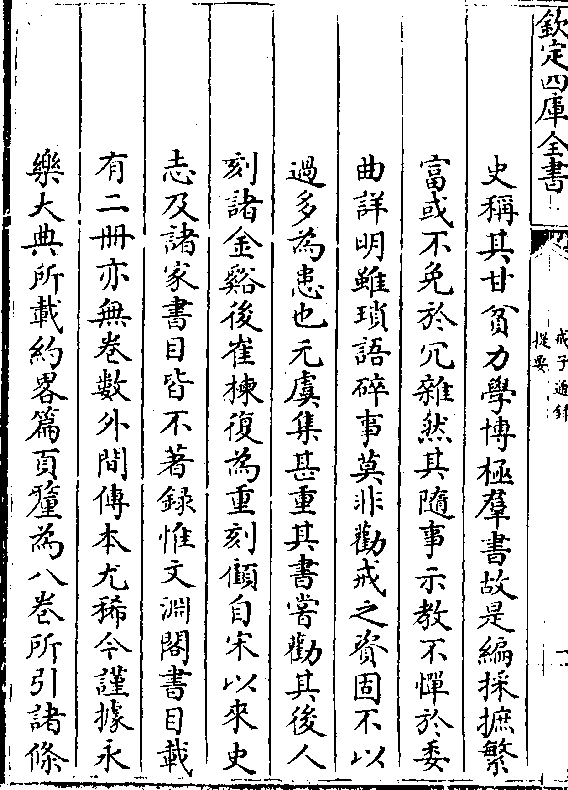 欽定四庫全書
戒子通録
提要
史稱其甘貧力學博極羣書故是編採摭繁
富或不免於冗雜然其隨事示教不憚於委
曲詳明雖瑣語碎事莫非勸戒之資固不以
過多為患也元虞集甚重其書嘗勸其後人
刻諸金谿後崔棟復為重刻顧自宋以來史
志及諸家書目皆不著録惟文淵閣書目載
有二冊亦無卷數外間傳本尤稀今謹據永
樂大典所載約畧篇頁釐為八卷所引諸條